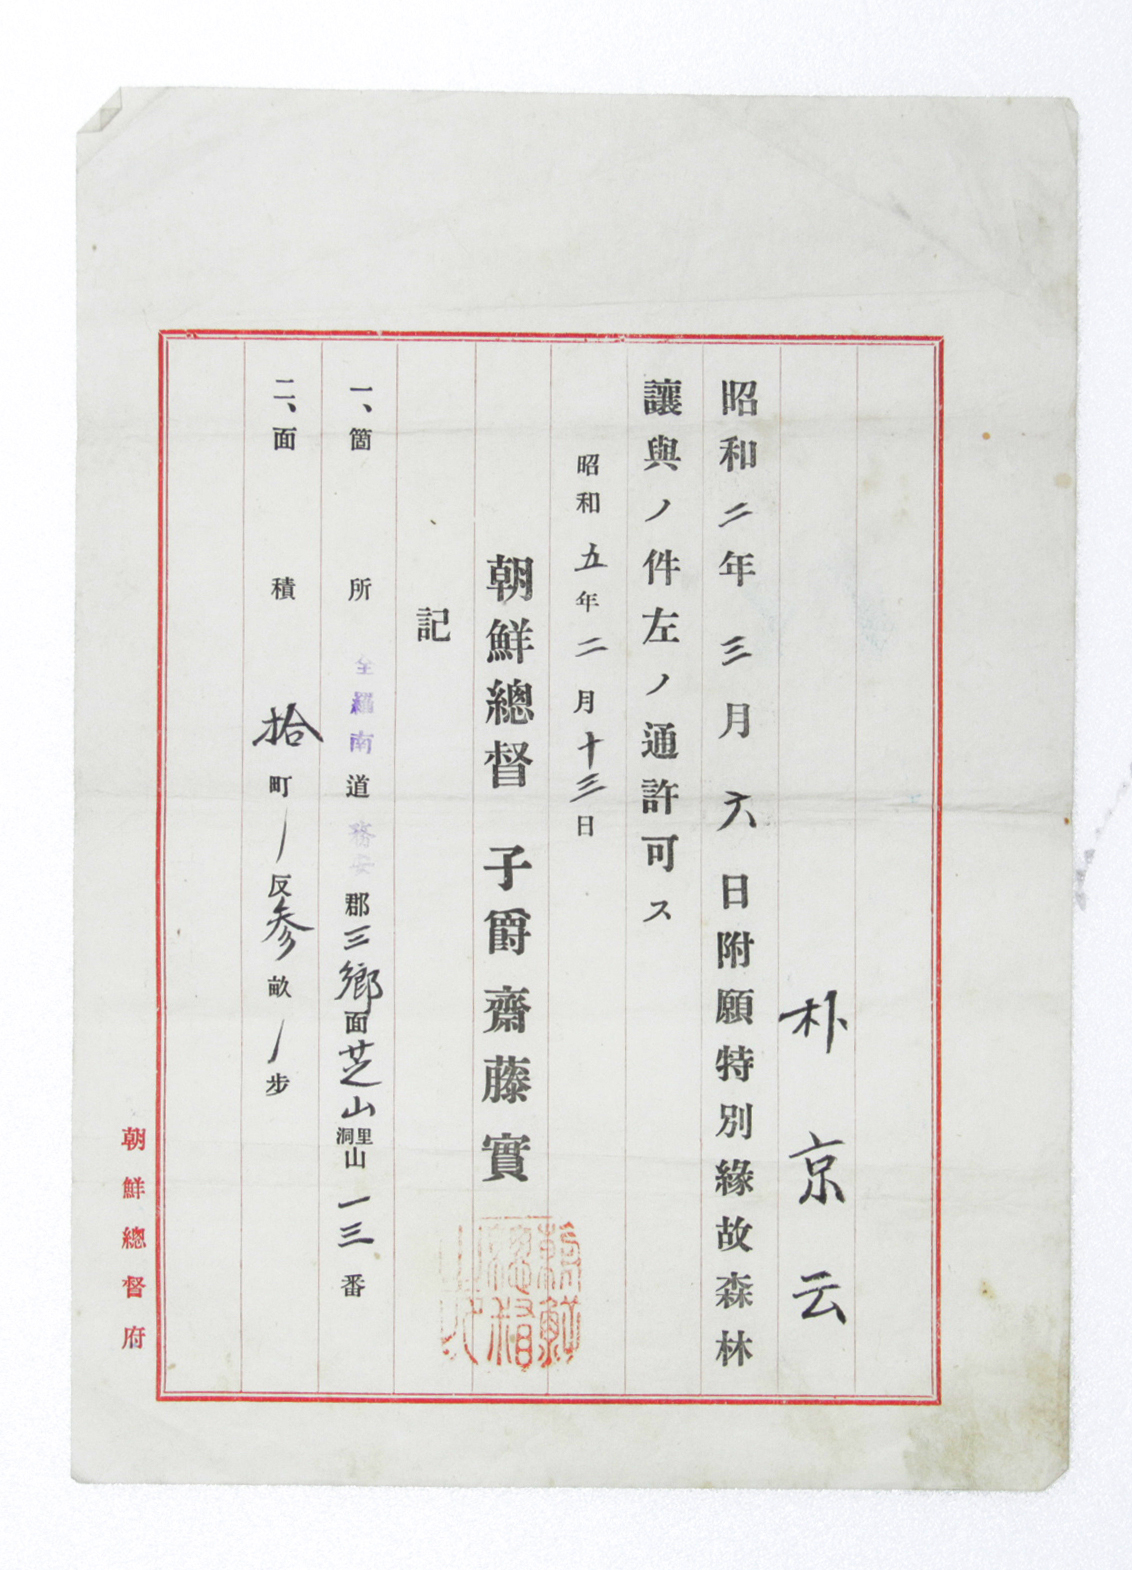 朴京云
昭和二年三月六日附願特別緣故森林
讓與ノ件左ノ通許可ス
昭和五年二月十三日
朝鮮總督 子爵 齋藤實
記
一、箇所 全羅南道務安郡三鄕面芝山里洞山一三番
二、面積 拾町〡反参畝〡步
朝鮮總督府
朝鮮總督之印